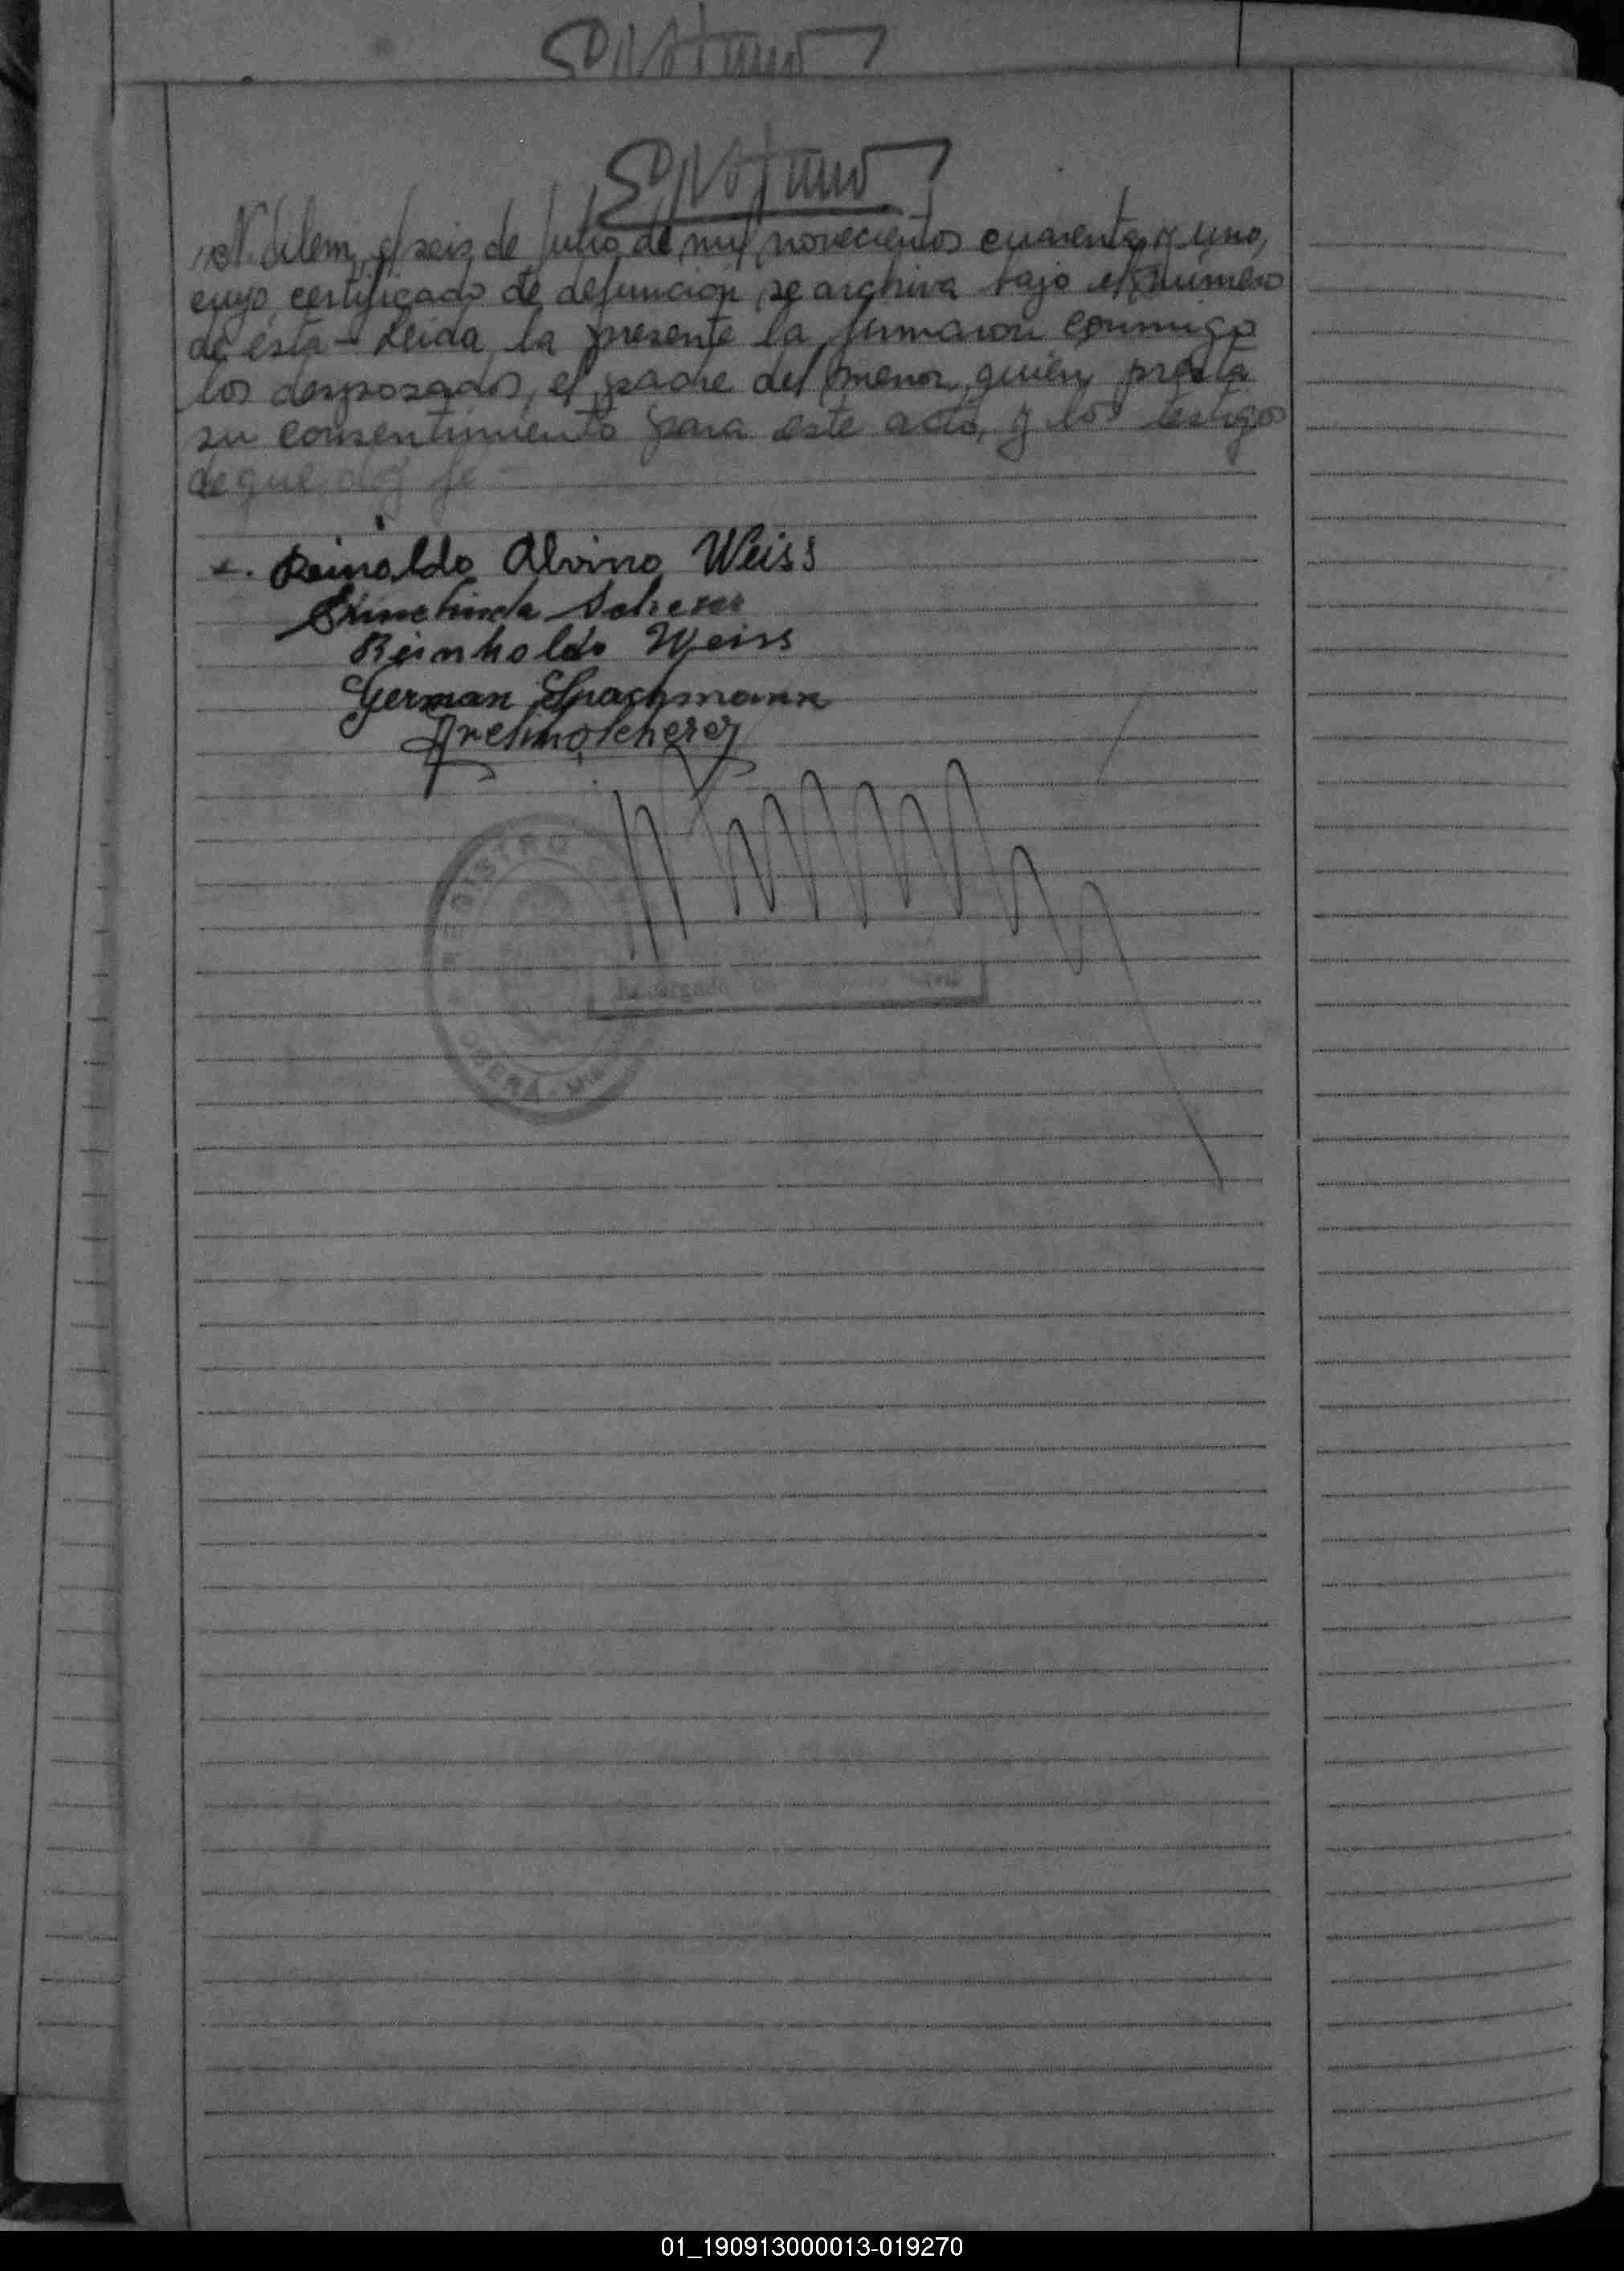 N. Alem, el seis de Julio de mil novecientos cuarenta y uno,
cuyo certificado de defunción se archiva bajo el número
de ésta - Leida la presente la firmaron conmigo
los desposados, el padre del menor, quién presta
su consentimiento para este acto, y los testigos
de que doy fé -
Reinaldo Alvino Weiss
Scherer
Reinholdo Weiss
German Spachmann
Avelino Scherer
REGISTRO
Encargado Civil
OBERÁ - 
01_190913000013-019270